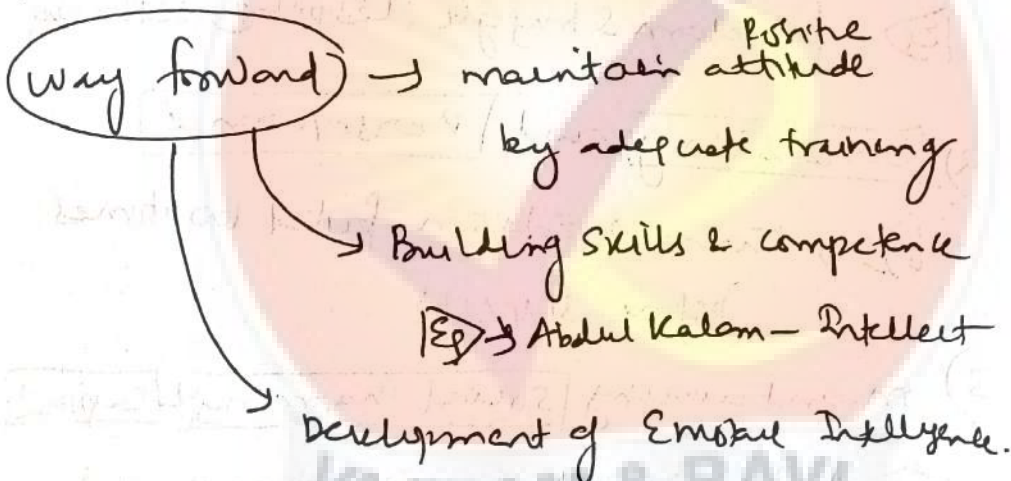 Way forward → maintain Positive attitude
by adequate training
→ Building Skills & competence
Eg → Abdul Kalam – Intellect
→ Development of Emotional Intelligence.
& RAVI